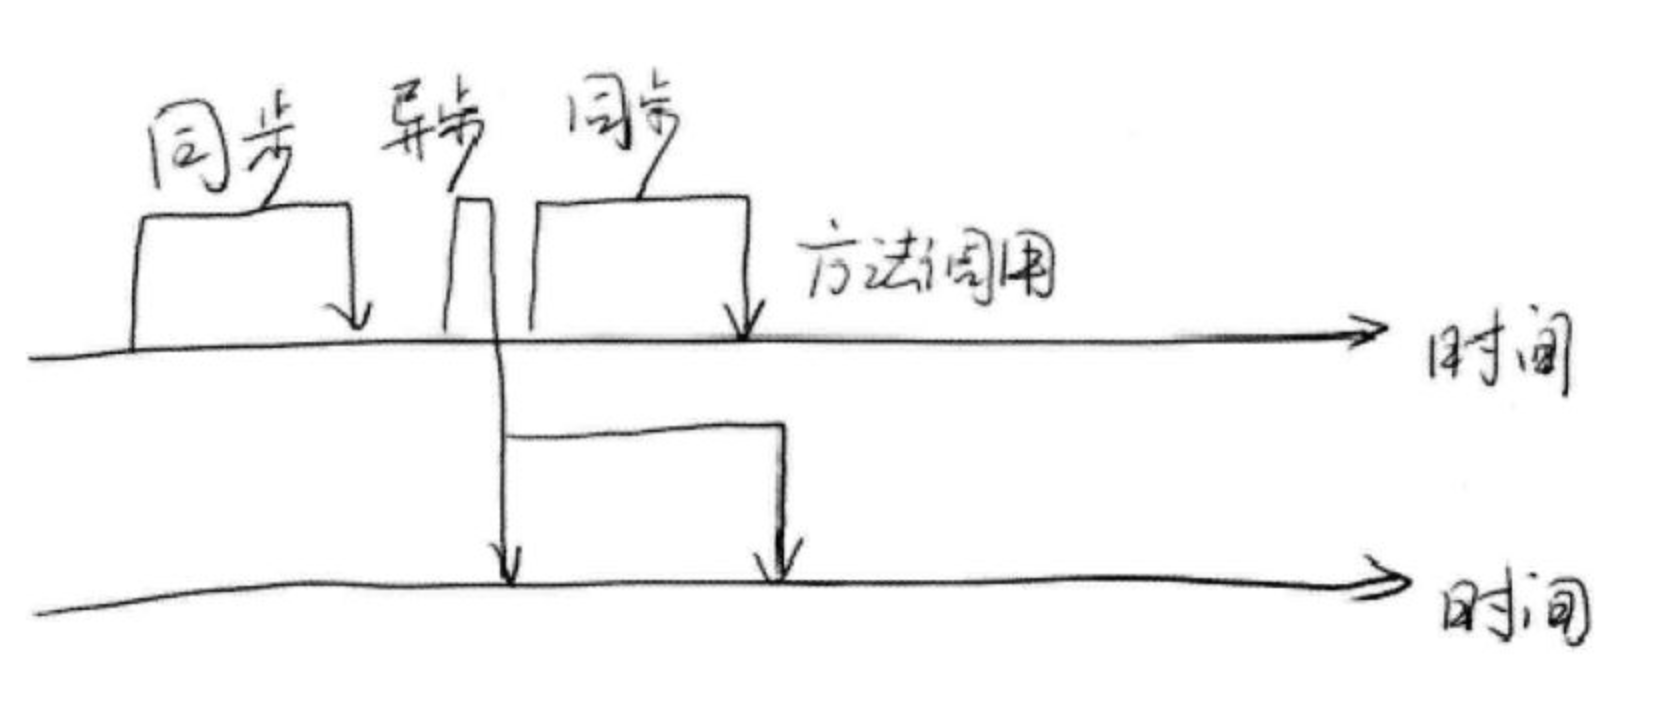 同步 异步 同步
方法调用
时间
时间